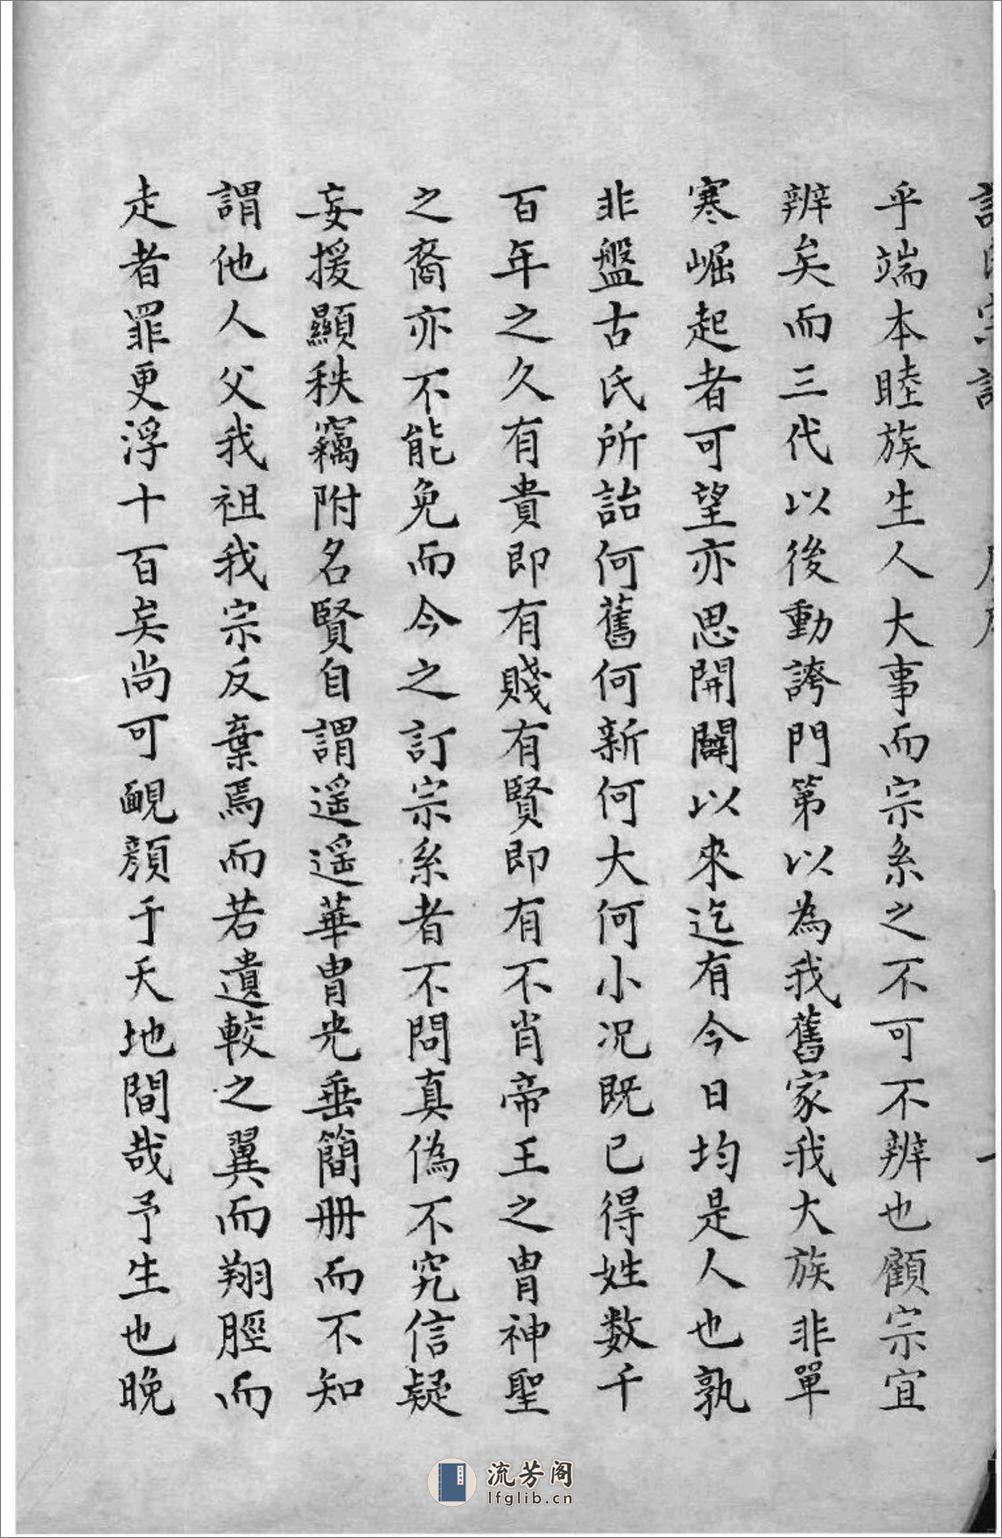 乎端本睦族生人大事而宗系之不可不辨也顧宗宜
辨矣而三代以後動誇門第以為我舊家我大族非單
寒崛起者可望亦思開闢以來迄有今日均是人也孰
非盤古氏所詒何舊何新何大何小况既已得姓数千
百年之久有貴即有賤有賢即有不肖帝王之胄神聖
之裔亦不能免而今之訂宗系者不問真偽不究信疑
妄援顯秩竊附名賢自謂遥遥華胄光垂簡册而不知
謂他人父我祖我宗反棄焉而若遺較之翼而翔脛而
走者罪更浮十百矣尚可靦顔于天地間哉予生也晚
流芳阁
lfglib.cn